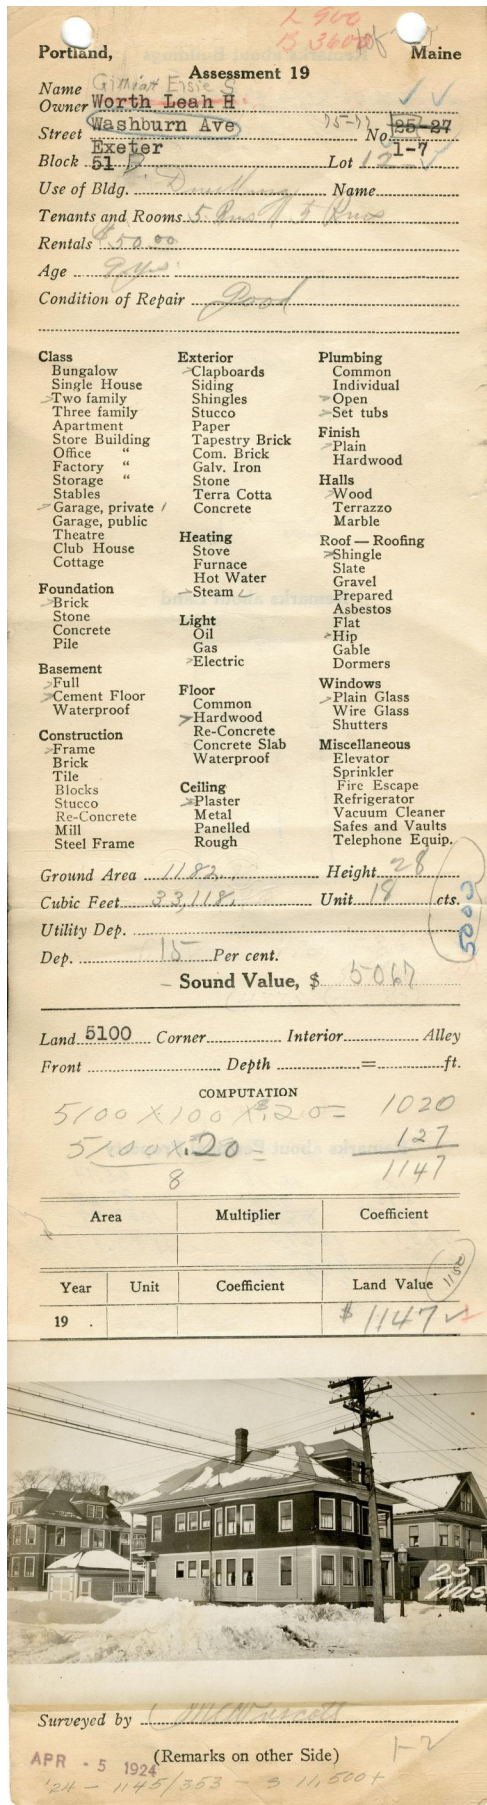 L 900
B 3600
Portland, Maine
Assessment 19
Name Elsie S
Owner Worth Leah H
Street Washburn Ave 75-77 No. 25-27
Exeter 1-7
Block 51 Lot 12
Use of Bldg. Dwelling Name
Tenants and Rooms 5 Rms 5 Rms
Rentals $50.00
Age 9 yrs.
Condition of Repair Good
Class
Bungalow
Single House
Two family
Three family
Apartment
Store Building
Office "
Factory "
Storage "
Stables
Garage, private 1
Garage, public
Theatre
Club House
Cottage
Foundation
Brick
Stone
Concrete
Pile
Basement
Full
Cement Floor
Waterproof
Construction
Frame
Brick
Tile
Blocks
Stucco
Re-Concrete
Mill
Steel Frame
Exterior
Clapboards
Siding
Shingles
Stucco
Paper
Tapestry Brick
Com. Brick
Galv. Iron
Stone
Terra Cotta
Concrete
Heating
Stove
Furnace
Hot Water
Steam
Light
Oil
Gas
Electric
Floor
Common
Hardwood
Re-Concrete
Concrete Slab
Waterproof
Ceiling
Plaster
Metal
Panelled
Rough
Plumbing
Common
Individual
Open
Set tubs
Finish
Plain
Hardwood
Halls
Wood
Terrazzo
Marble
Roof — Roofing
Shingle
Slate
Gravel
Prepared
Asbestos
Flat
Hip
Gable
Dormers
Windows
Plain Glass
Wire Glass
Shutters
Miscellaneous
Elevator
Sprinkler
Fire Escape
Refrigerator
Vacuum Cleaner
Safes and Vaults
Telephone Equip.
Ground Area 1182. Height 28
Cubic Feet 33,118. Unit 18 cts.
5000
Utility Dep.
Dep. 15 Per cent.
Sound Value, $ 5067
Land 5100 Corner Interior Alley
Front Depth = ft.
COMPUTATION
5100 X 100 X .20 = 1020
5100 X .20 = 127
8 1147
Area Multiplier Coefficient
1150
Year Unit Coefficient Land Value
19 . $ 1147
25
Surveyed by
(Remarks on other Side) 1-2
APR - 5 1924
'24 - 1145/353 - $ 11,500+